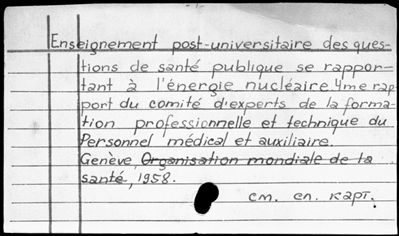 Enseignement post-universitaire des ques-
tions de santé publique se rappor-
tant à l'énergie nucléaire. 4me rap
port du comité d'experts de la forma-
tion professionnelle et technique du
Personnel médical et auxiliaire.
Genève, Organisation mondiale de la
santé, 1958.
см. сп. карт.